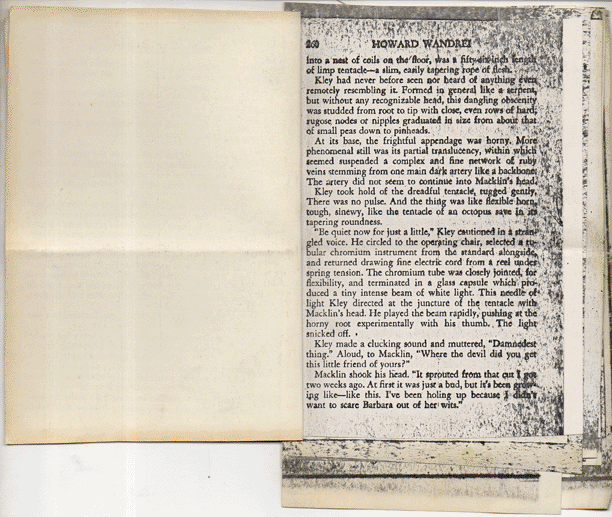 260 HOWARD WANDREI
into a nest of coils on the floor, was a fifty-six-inch length
of limp tentacle—a slim, easily tapering rope of flesh.
Kley had never before seen nor heard of anything even
remotely resembling it. Formed in general like a serpent,
but without any recognizable head, this dangling obscenity
was studded from root to tip with close, even rows of hard,
rugose nodes or nipples graduated in size from about that
of small peas down to pinheads.
At its base, the frightful appendage was horny. More
phenomenal still was its partial translucency, within which
seemed suspended a complex and fine network of ruby
veins stemming from one main dark artery like a backbone.
The artery did not seem to continue into Macklin's head.
Kley took hold of the dreadful tentacle, tugged gently.
There was no pulse. And the thing was like flexible horn,
tough, sinewy, like the tentacle of an octopus save in its
tapering roundness.
"Be quiet now for just a little," Kley cautioned in a stran-
gled voice. He circled to the operating chair, selected a tu-
bular chromium instrument from the standard alongside,
and returned drawing fine electric cord from a reel under
spring tension. The chromium tube was closely jointed, for
flexibility, and terminated in a glass capsule which pro-
duced a tiny intense beam of white light. This needle of
light Kley directed at the juncture of the tentacle with
Macklin's head. He played the beam rapidly, pushing at the
horny root experimentally with his thumb. The light
snicked off.
Kley made a clucking sound and muttered, "Damnedest
thing." Aloud, to Macklin, "Where the devil did you get
this little friend of yours?"
Macklin shook his head. "It sprouted from that cut I got
two weeks ago. At first it was just a bud, but it's been grow-
ing like—like this. I've been holing up because I didn't
want to scare Barbara out of her wits."